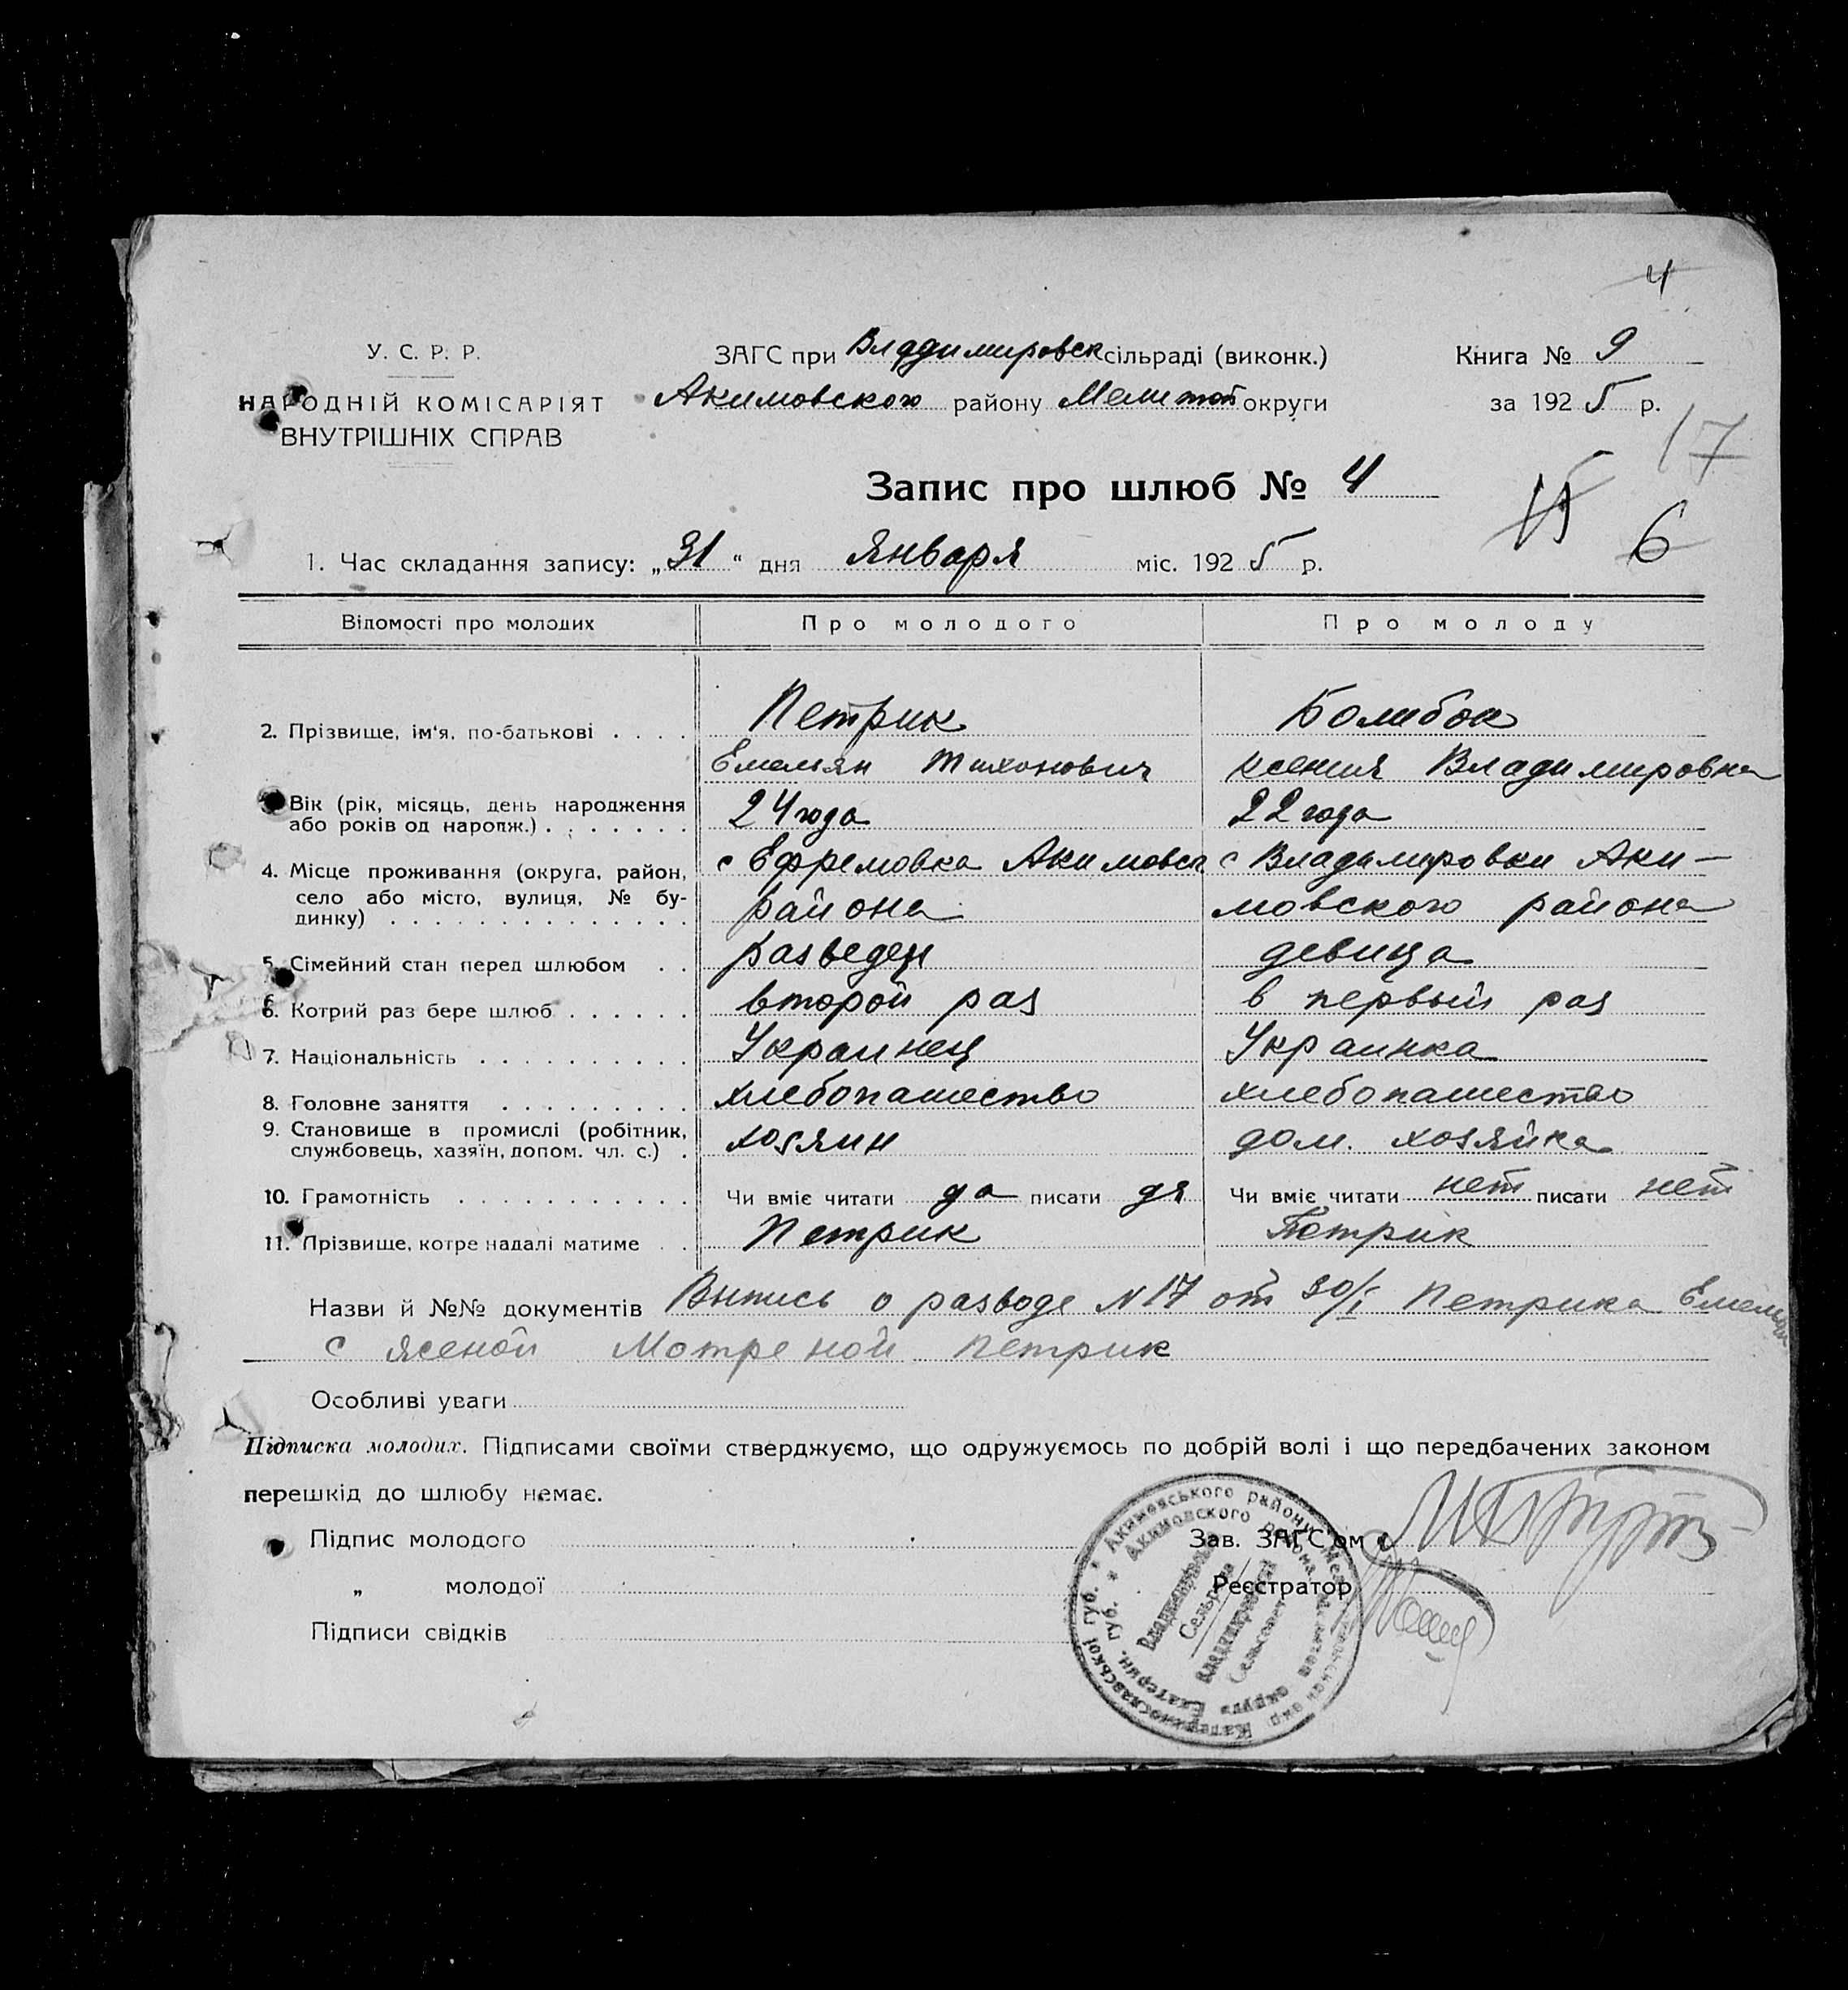 4
У. С. Р. Р.
НАРОДНІЙ КОМІСАРІЯТ
ВНУТРІШНІХ СПРАВ
ЗАГС при Владимировск сільраді (виконк.)
Акимовского району Мелитоп округи
Книга № 9
за 1925 р.
17
Запис про шлюб № 4
15
6
1. Час складання запису: „31“ дня января міс. 1925 р.
Відомості про молодих Про молодого Про молоду
2. Прізвище, ім'я, по-батькові . . . . Петрик Болибок
Емельян Тихонович Ксения Владимировна
Вік (рік, місяць, день народження
або років од нарож.) . . . . . . . 24 года 22 года
4. Місце проживання (округа, район, с Ефремовка Акимовск с Владимировки Аки-
село або місто, вулиця, № бу-
динку) . . . . . . . . . . . . . . района мовского района
5. Сімейний стан перед шлюбом . . разведен девица
6. Котрий раз бере шлюб . . . . . . второй раз в первый раз
7. Національність . . . . . . . . . . Украинец Украинка
8. Головне заняття . . . . . . . . . хлебопашество хлебопашество
9. Становище в промислі (робітник,
службовець, хазяїн, допом. чл. с.) . хозяин дом. хозяйка
10. Грамотність . . . . . . . . . . . Чи вміє читати да писати да Чи вміє читати нет писати нет
11. Прізвище, котре надалі матиме . . Петрик Петрик
Назви й №№ документів Выпись о разводе N 17 от 30/I Петрика Емельян
с женой Мотреной Петрик
Особливі уваги
Підписка молодих. Підписами своїми стверджуємо, що одружуємось по добрій волі і що передбачених законом
перешкід до шлюбу немає.
Підпис молодого Зав. ЗАГС'ом
„ молодої Реєстратор
Підписи свідків
Акимовського району
Катеринославської губ.
Акимовского района
Екатерин. губ.
Сельрада
Владимировский
Сельсовет